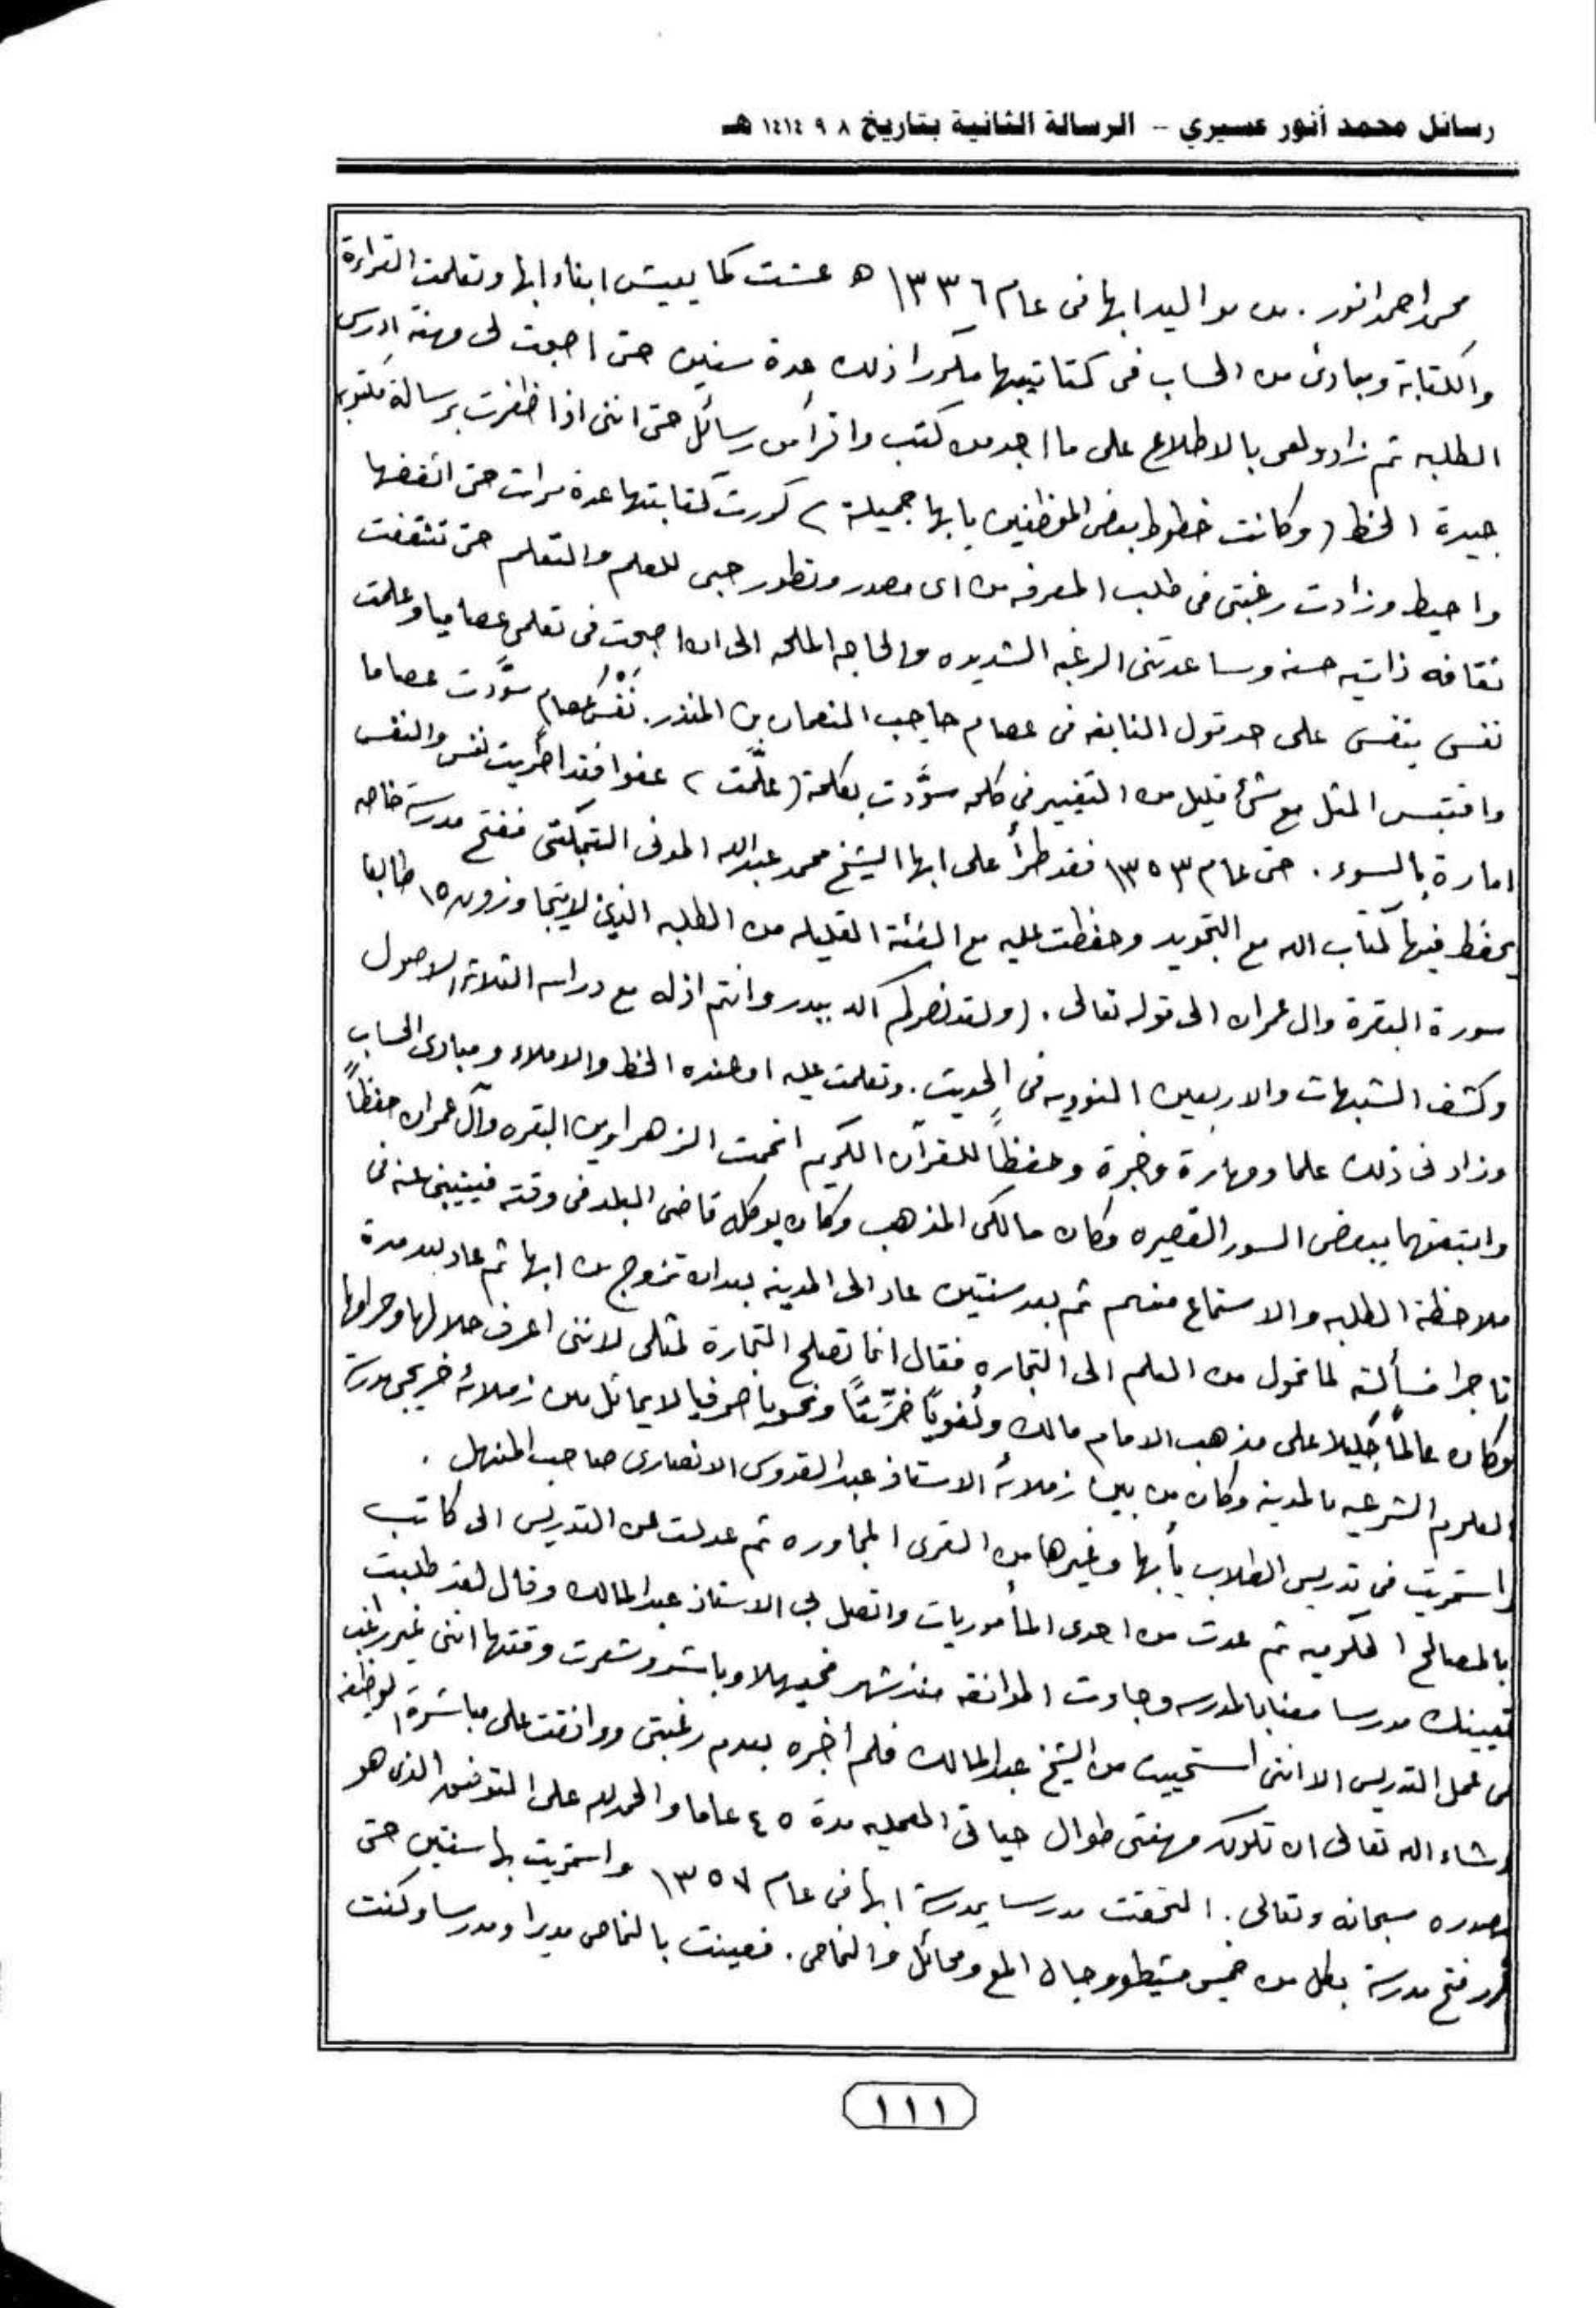 رسائل محمد أنور عسيري - الرسالة الثانية بتاريخ ٨ ٩ ١٤١٤ هـ
محمد احمد انور . من مواليد ابها فى عام ١٣٣٦ ه عشت كما يعيش ابناء ابها وتعلمت القراءة
والكتابة ومبادئ من الحساب فى كتاتيبها مكررا ذلك عدة سنين حتى اصبحت لى مهنة ادرس
الطلبه ثم زاد ولعى بالاطلاع على ما اجد من كتب واقرأ من رسائل حتى اننى اذا ظفرت برسالة مكتوبه
جيدة الخط ( وكانت خطوط بعض الموظفين بابها جميلة ) كررت كتابتها عدة مرات حتى اتقنها
واحيط وزادت رغبتى فى طلب المعرفه من اى مصدر وتطور حبى للعلم والتعلم حتى تثقفت
ثقافه ذاتيه حسنه وساعدتنى الرغبه الشديده والحاجه الملحه الى ان اصبحت فى تعلمى عصاميا وعلمت
نفسى بنفسى على حد قول النابغه فى عصام حاجب النعمان بن المنذر . نَفْسُ عصام سوَّدت عصاما
واقتبس المثل مع شئ قليل من التغيير فى كلمه سوَّدت بكلمة ( علَّمت ) عفوا فقد اطريت نفسى والنفس
امارة بالسوء . حتى عام ١٣٥٣ فقد طرأ على ابها الشيخ محمد عبدالله المدنى التمبكتى ففتح مدرسة خاصه
يحفظ فيها كتاب الله مع التجويد وحفظت عليه مع الفئة القليله من الطلبه الذين لا يتجاوزون ١٥ طالبا
سورة البقرة وال عمران الى قوله تعالى . ( ولقد نصركم الله ببدر وانتم اذله مع دراسه الثلاثة الاصول
وكشف الشبهات والاربعين النوويه فى الحديث . وتعلمت عليه اوعنده الخط والاملاء ومبادى الحساب
وزاد فى ذلك علما ومهارة وخبرة وحفظاً للقرآن الكريم اتممت الزهراوين البقره وآل عمران حفظاً
واتبعتهما ببعض السور القصيره وكان مالكى المذهب وكان يوكله قاضى البلد فى وقته فينيبنى عنه فى
ملاحظة الطلبه والاستماع منهم ثم بعد سنتين عاد الى المدينه بعد ان تزوج من ابها ثم عاد بعد مدة
تاجرا فسألته لما تحول من العلم الى التجاره فقال انما تصلح التجارة لمثلى لاننى اعرف حلالها وحرامها
وكان عالماً جليلا على مذهب الامام مالك ولُغوياً خرِّيتاً ونحويا صرفيا لا يماثل من زملائه خريجى مدرسة
العلوم الشرعيه بالمدينه وكان من بين زملائه الاستاذ عبدالقدوس الانصارى صاحب المنهل .
استمريت فى تدريس الطلاب بأبها وغيرها من القرى المجاوره ثم عدلت عن التدريس الى كاتب
بالمصالح الحكوميه ثم عدت من احدى المأموريات واتصل بى الاستاذ عبدالمالك وقال لقد طلبت
تعيينك مدرسا معنا بالمدرسه وجاءت الموافقه منذ شهر فحيهلا وباشر وشعرت وقتها اننى غير راغب
فى عمل التدريس الا اننى استحييت من الشيخ عبدالمالك فلم أخبره بعدم رغبتى ووافقت على مباشرة الوظيفه
وشاء الله تعالى ان تكون مهنتى طوال حياتى العمليه مدة ٤٥ عاما والحمد لله على التوفيق الذى هو
مصدره سبحانه وتعالى . التحقت مدرسا بمدرسة ابها فى عام ١٣٥٧ واستمريت بها سنتين حتى
تقرر فتح مدرسة بكل من خميس مشيط ورجال المع ومحائل والنماص . فعينت بالنماص مديرا ومدرسا وكنت
١١١